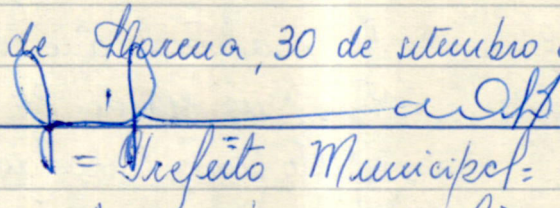 de Lorena, 30 de setembro
= Prefeito Municipal=